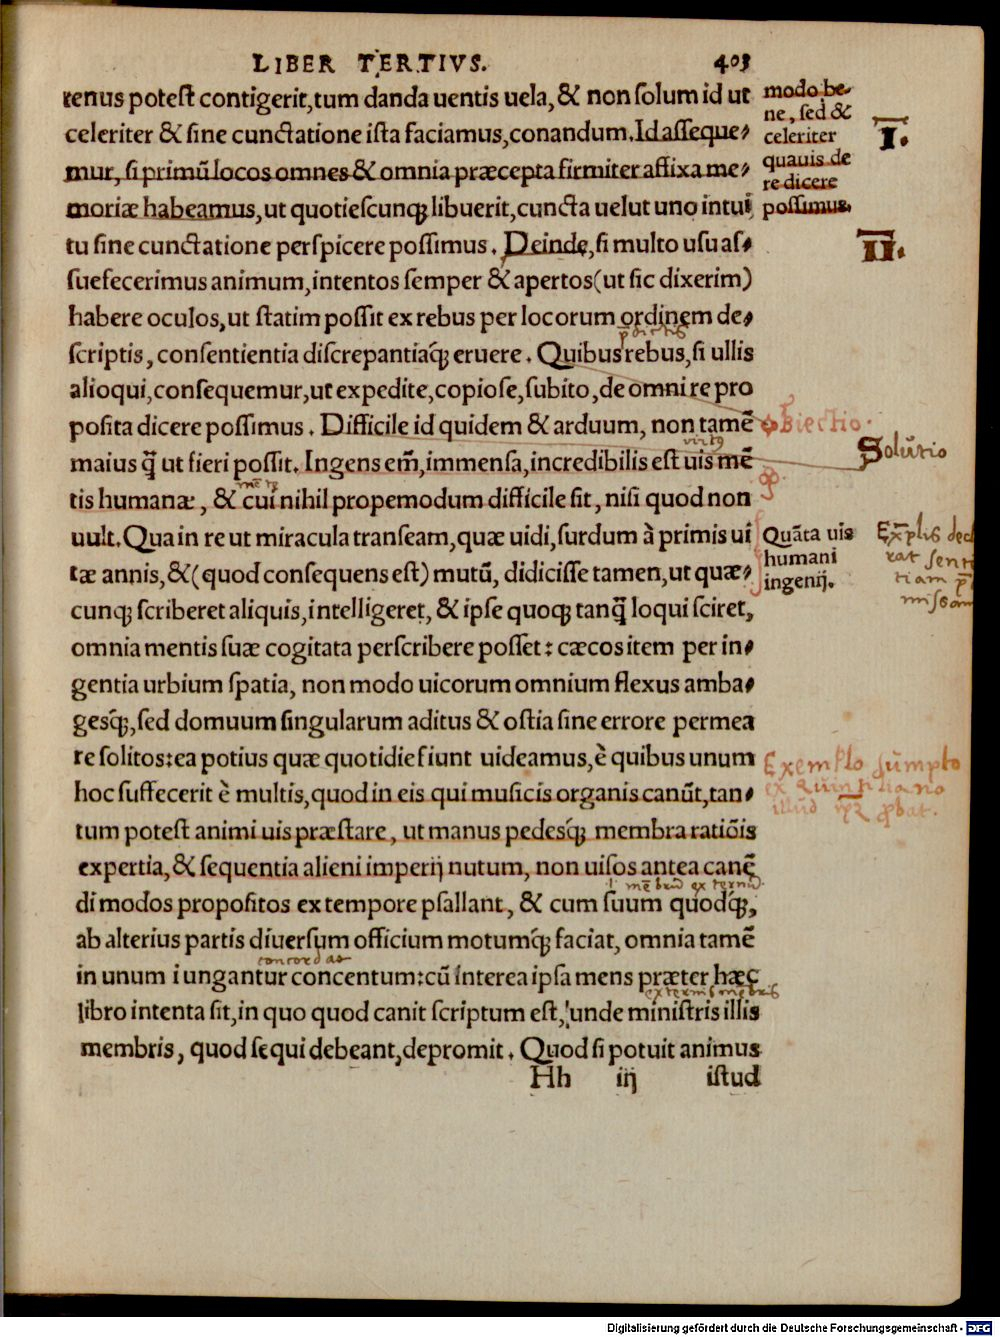 LIBER TERTIVS. 403
tenus potest contigerit, tum danda uentis uela, & non solum id ut
celeriter & sine cunctatione ista faciamus, conandum. Id asseque-
mur, si primũ locos omnes & omnia præcepta firmiter affixa me-
moriæ habeamus, ut quotiescunq; libuerit, cuncta uelut uno intui
tu sine cunctatione perspicere possimus. Deinde, si multo usu as-
suefecerimus animum, intentos semper & apertos (ut sic dixerim)
habere oculos, ut statim possit ex rebus per locorum ordinem de-
scriptis, consentientia discrepantiaq́; eruere. Quibus rebus, si ullis
alioqui, consequemur, ut expedite, copiose, subito, de omni re pro
posita dicere possimus. Difficile id quidem & arduum, non tamẽ
maius q̃ ut fieri possit. Ingens em̃, immensa, incredibilis est uis mẽ
tis humanæ, & cui nihil propemodum difficile sit, nisi quod non
uult. Qua in re ut miracula transeam, quæ uidi, surdum à primis ui
tæ annis, & (quod consequens est) mutũ, didicisse tamen, ut quæ-
cunq; scriberet aliquis, intelligeret, & ipse quoq; tanq̃ loqui sciret,
omnia mentis suæ cogitata perscribere posset: cæcos item per in-
gentia urbium spatia, non modo uicorum omnium flexus amba-
gesq́;, sed domuum singularum aditus & ostia sine errore permea
re solitos: ea potius quæ quotidie fiunt uideamus, è quibus unum
hoc suffecerit è multis, quod in eis qui musicis organis canũt, tan-
tum potest animi uis præstare, ut manus pedesq́; membra ratiõis
expertia, & sequentia alieni imperij nutum, non uisos antea canẽ
di modos propositos ex tempore psallant, & cum suum quodq́;,
ab alterius partis diuersum officium motumq́; faciat, omnia tamẽ
in unum iungantur concentum: cũ interea ipsa mens præter hæc
libro intenta sit, in quo quod canit scriptum est, unde ministris illis
membris, quod sequi debeant, depromit. Quod si potuit animus
Hh iij istud
modo be-
ne, sed &
celeriter
quauis de
re dicere
possimus.
I.
II.
obiectio.
Solutio
Quãta uis
humani
ingenij.
Exp̃lis
senten
tiam
Exemplo sumpto
ex Quintiliano
illud
concordas
externis mẽbris